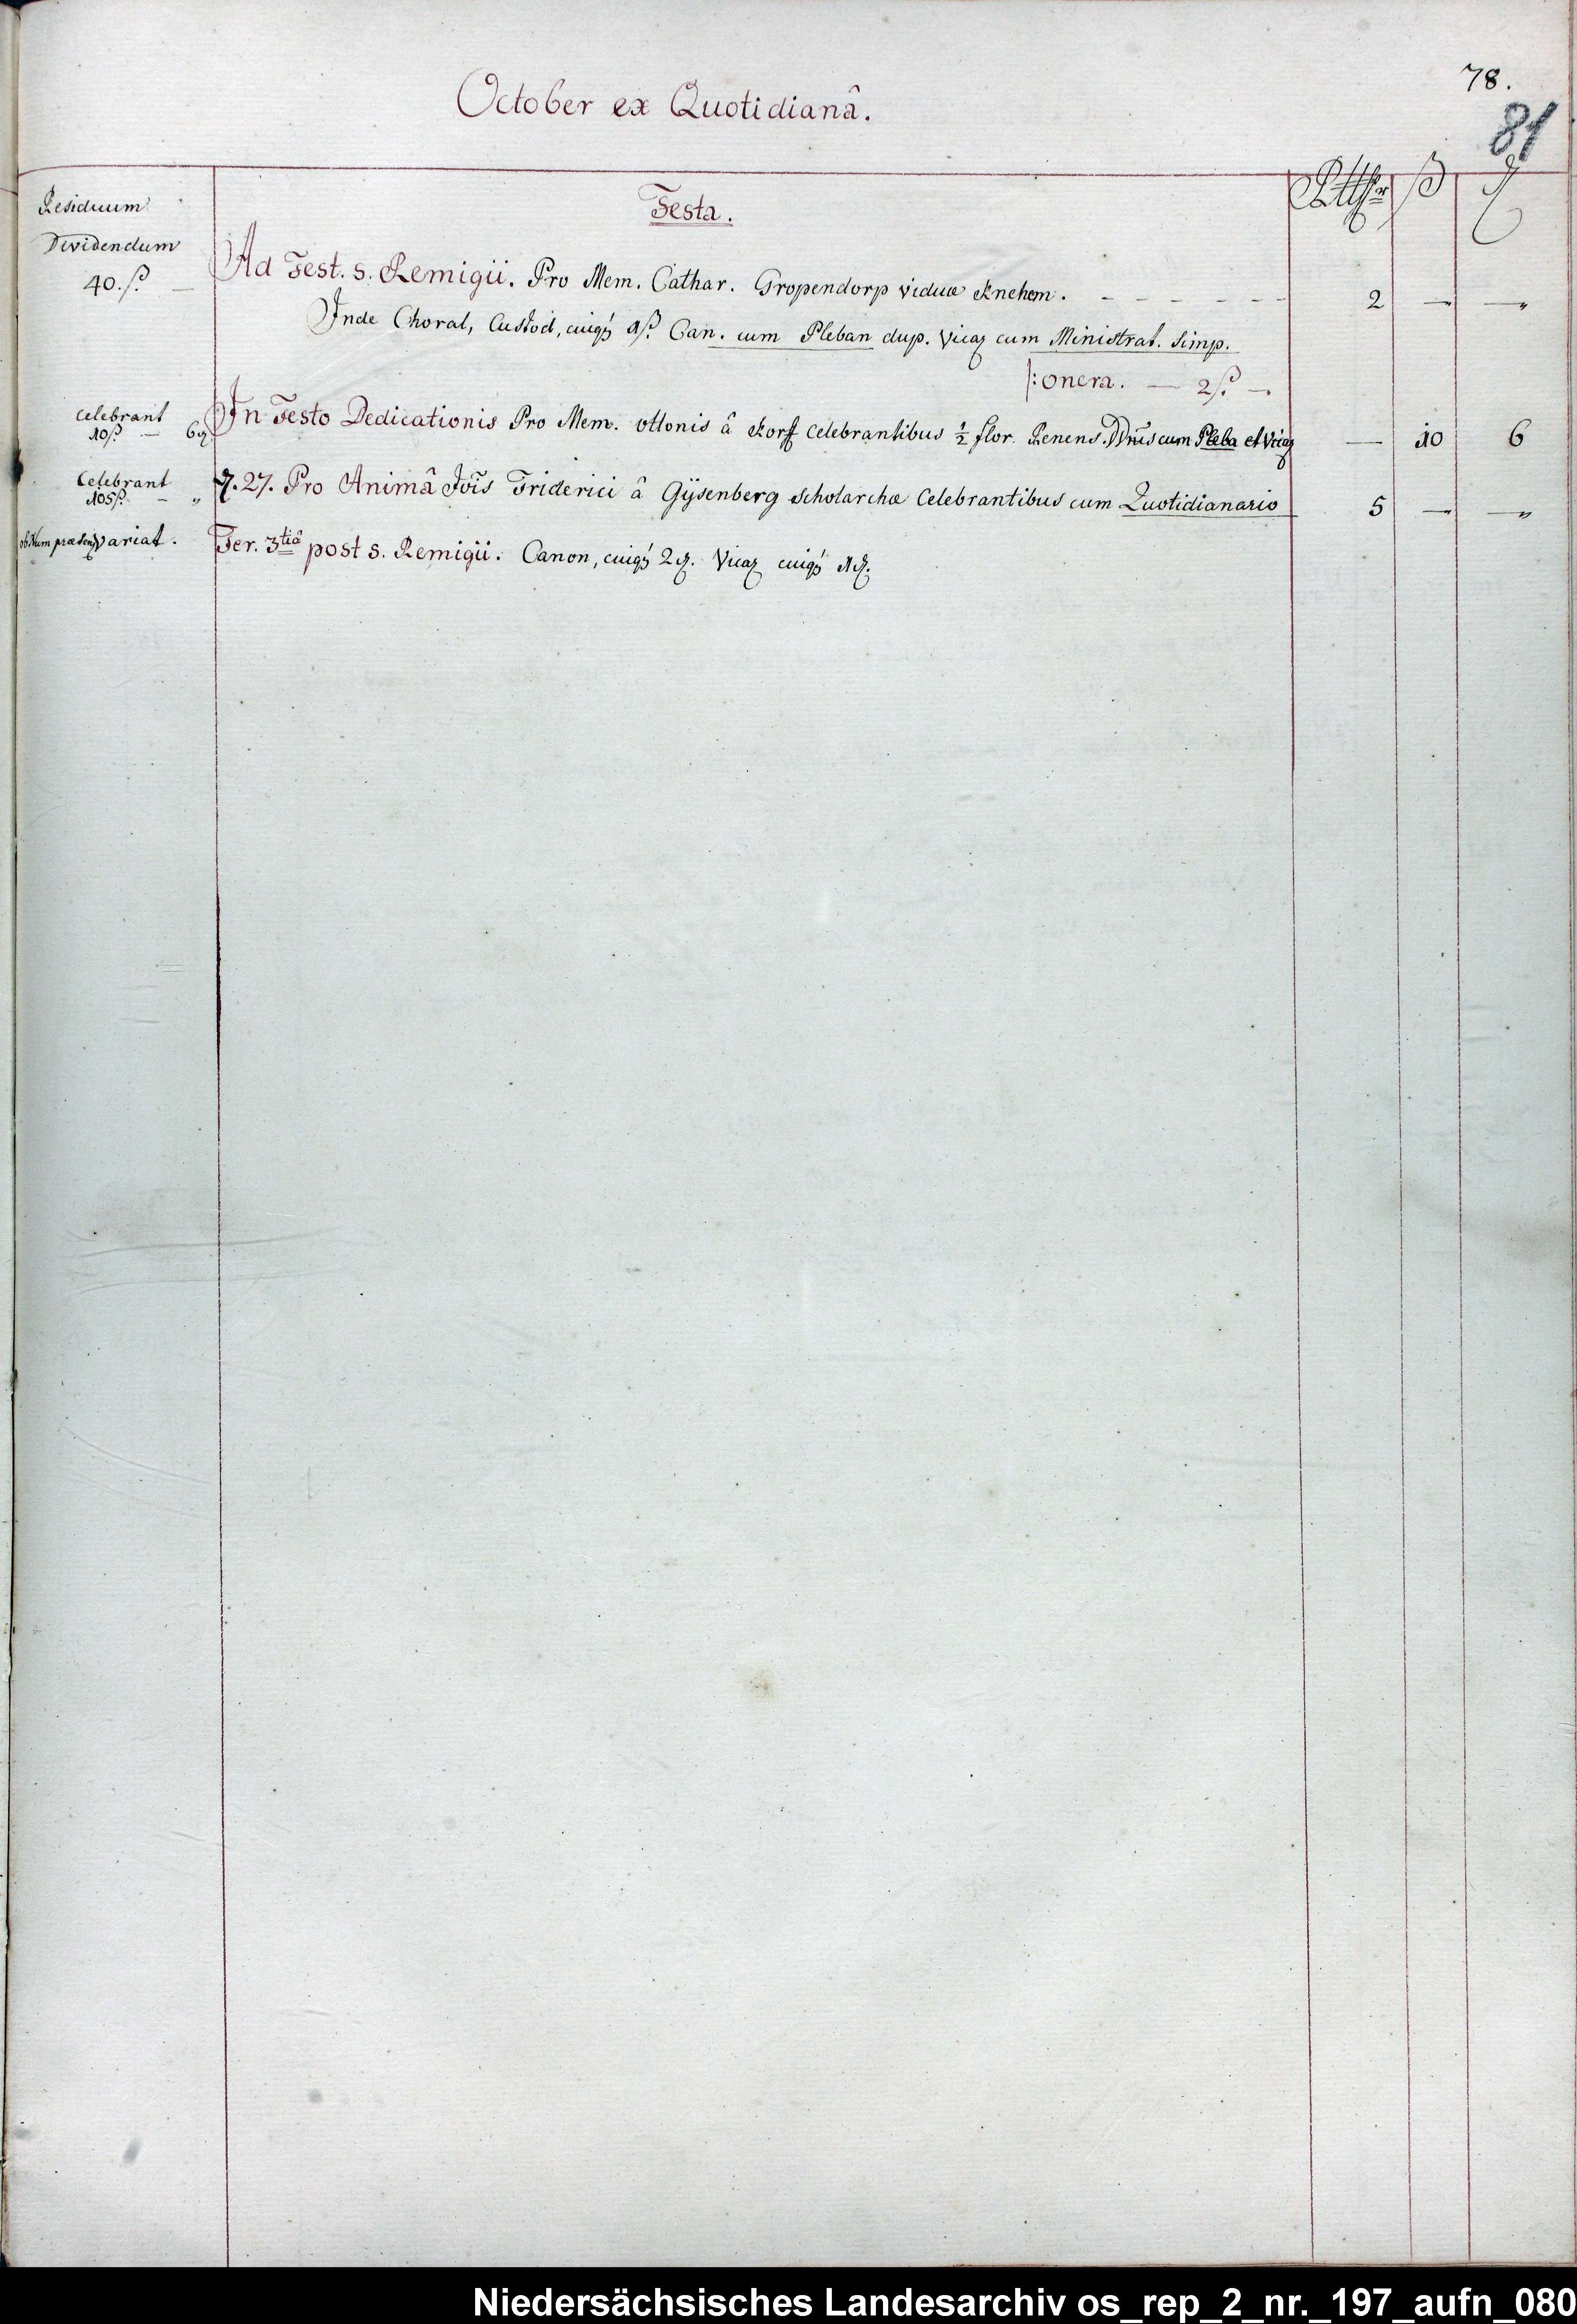 78.
81
October ex Quotidianâ.
Residuum
Dividendum
Festa.
Rtthlr ß ₰
40. ß. — Ad Fest. s. Remigii. Pro Mem. Cathar. Gropendorp viduæ Knehem. - - - - - - 2 — „
Inde Choral, Custod, cuiqȝ 1ß. Can. cum Pleban dup. Vicaȝ cum Ministrat. Simp.
/: onera. — 2ß —
celebrant
10ß — 6₰ In Festo Dedicationis Pro Mem. ottonis â Korff celebrantibus ½ flor. Renens. DDnis cum Pleba et Vicaȝ — 10 6
Celebrant
105ß. — „ 7. 27. Pro Animâ Jois Friderici â Gÿsenberg scholarchæ Celebrantibus cum Quotidianario 5 — „
ob Num præsenȝ variat. Fer. 3tiâ post s. Remigii. Canon, cuiqȝ 2₰. Vicaȝ cuiqȝ 1₰.
Niedersächsisches Landesarchiv os_rep_2_nr._197_aufn_080